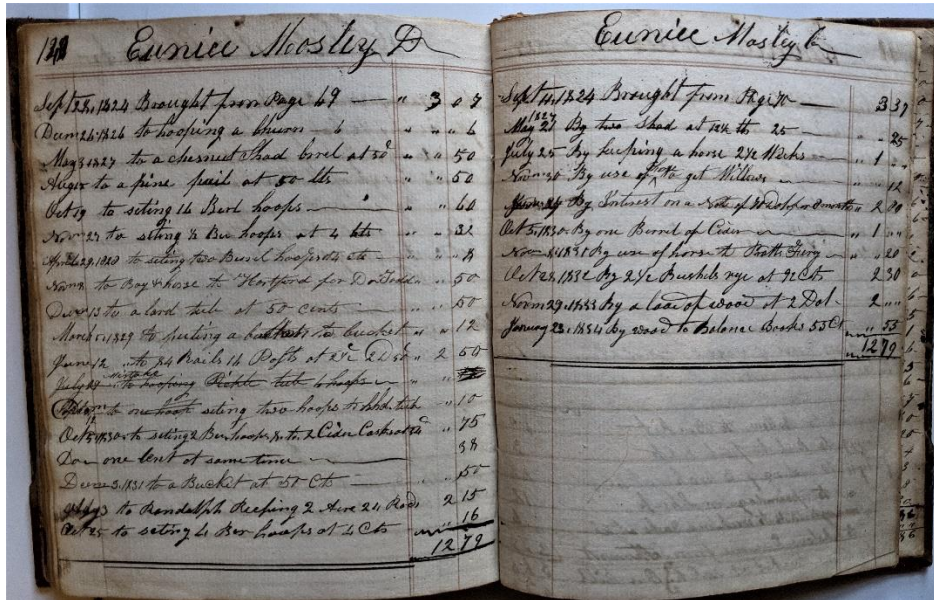 Eunice Mosley Dr
Sept 28, 1824 Brought from Page 69 — " 3 0 7
Decm 26 1826 to hooping a churn — 6 " " 6
May 3 1827 to a chesnut Shad brrel at 50 " " 50
to a pine pail at 50 cts " 50
Oct 19 to seting 14 Berl hoops — " 60
Novr 27 to seting Ber hoops at 4 cts " 32
April 29, 1828 to seting two Berrel hoops at 4 cts " " 8
Novr 8 to Boy & horse to Hartford for Dr Todd " 50
13 to a lard tub at 50 cents — " 50
March 5, 1829 to puting a to bucket " " 12
June 12 to 34 Rails 14 Posts at " 2 50
mistake
to hooping Pickle tub 6 hoops
to one hoop seting two hoops to hhd tub " 10
Oct 5, 1830 to seting 2 Ber hoops 2 Cider Casks " 75
Do one lent at same time — 38
3, 1831 to a Bucket at 50 Cts — 50
to Randolph Reeping 2 Acre 24 Rods 2 15
Oct 25 to seting 4 Ber hoops at 4 Cts 16
12 79
Eunice Mosley Cr
Sept 11, 1824 Brought from Page 70 — 3 37
1827
May 21 By two Shad at 12½ cts 25 — " 25
July 25 By keeping a horse 2½ Weeks — " 1 "
Novr 30 By use of to get Willows — " 12
By Intrest on a Note of months " 2
Oct 5, 1830 By one Birrel of Cider — " 1 "
Nov 1831 By use of horse to " 20
Oct 28, 1832 By 2½ Bushels rye at 92 Cts 2 30
Novm 29, 1833 By a load of wood at 2 Dol — 2 "
January 23, 1834 By wood to Balance Books 55 Ct " 55
12 79